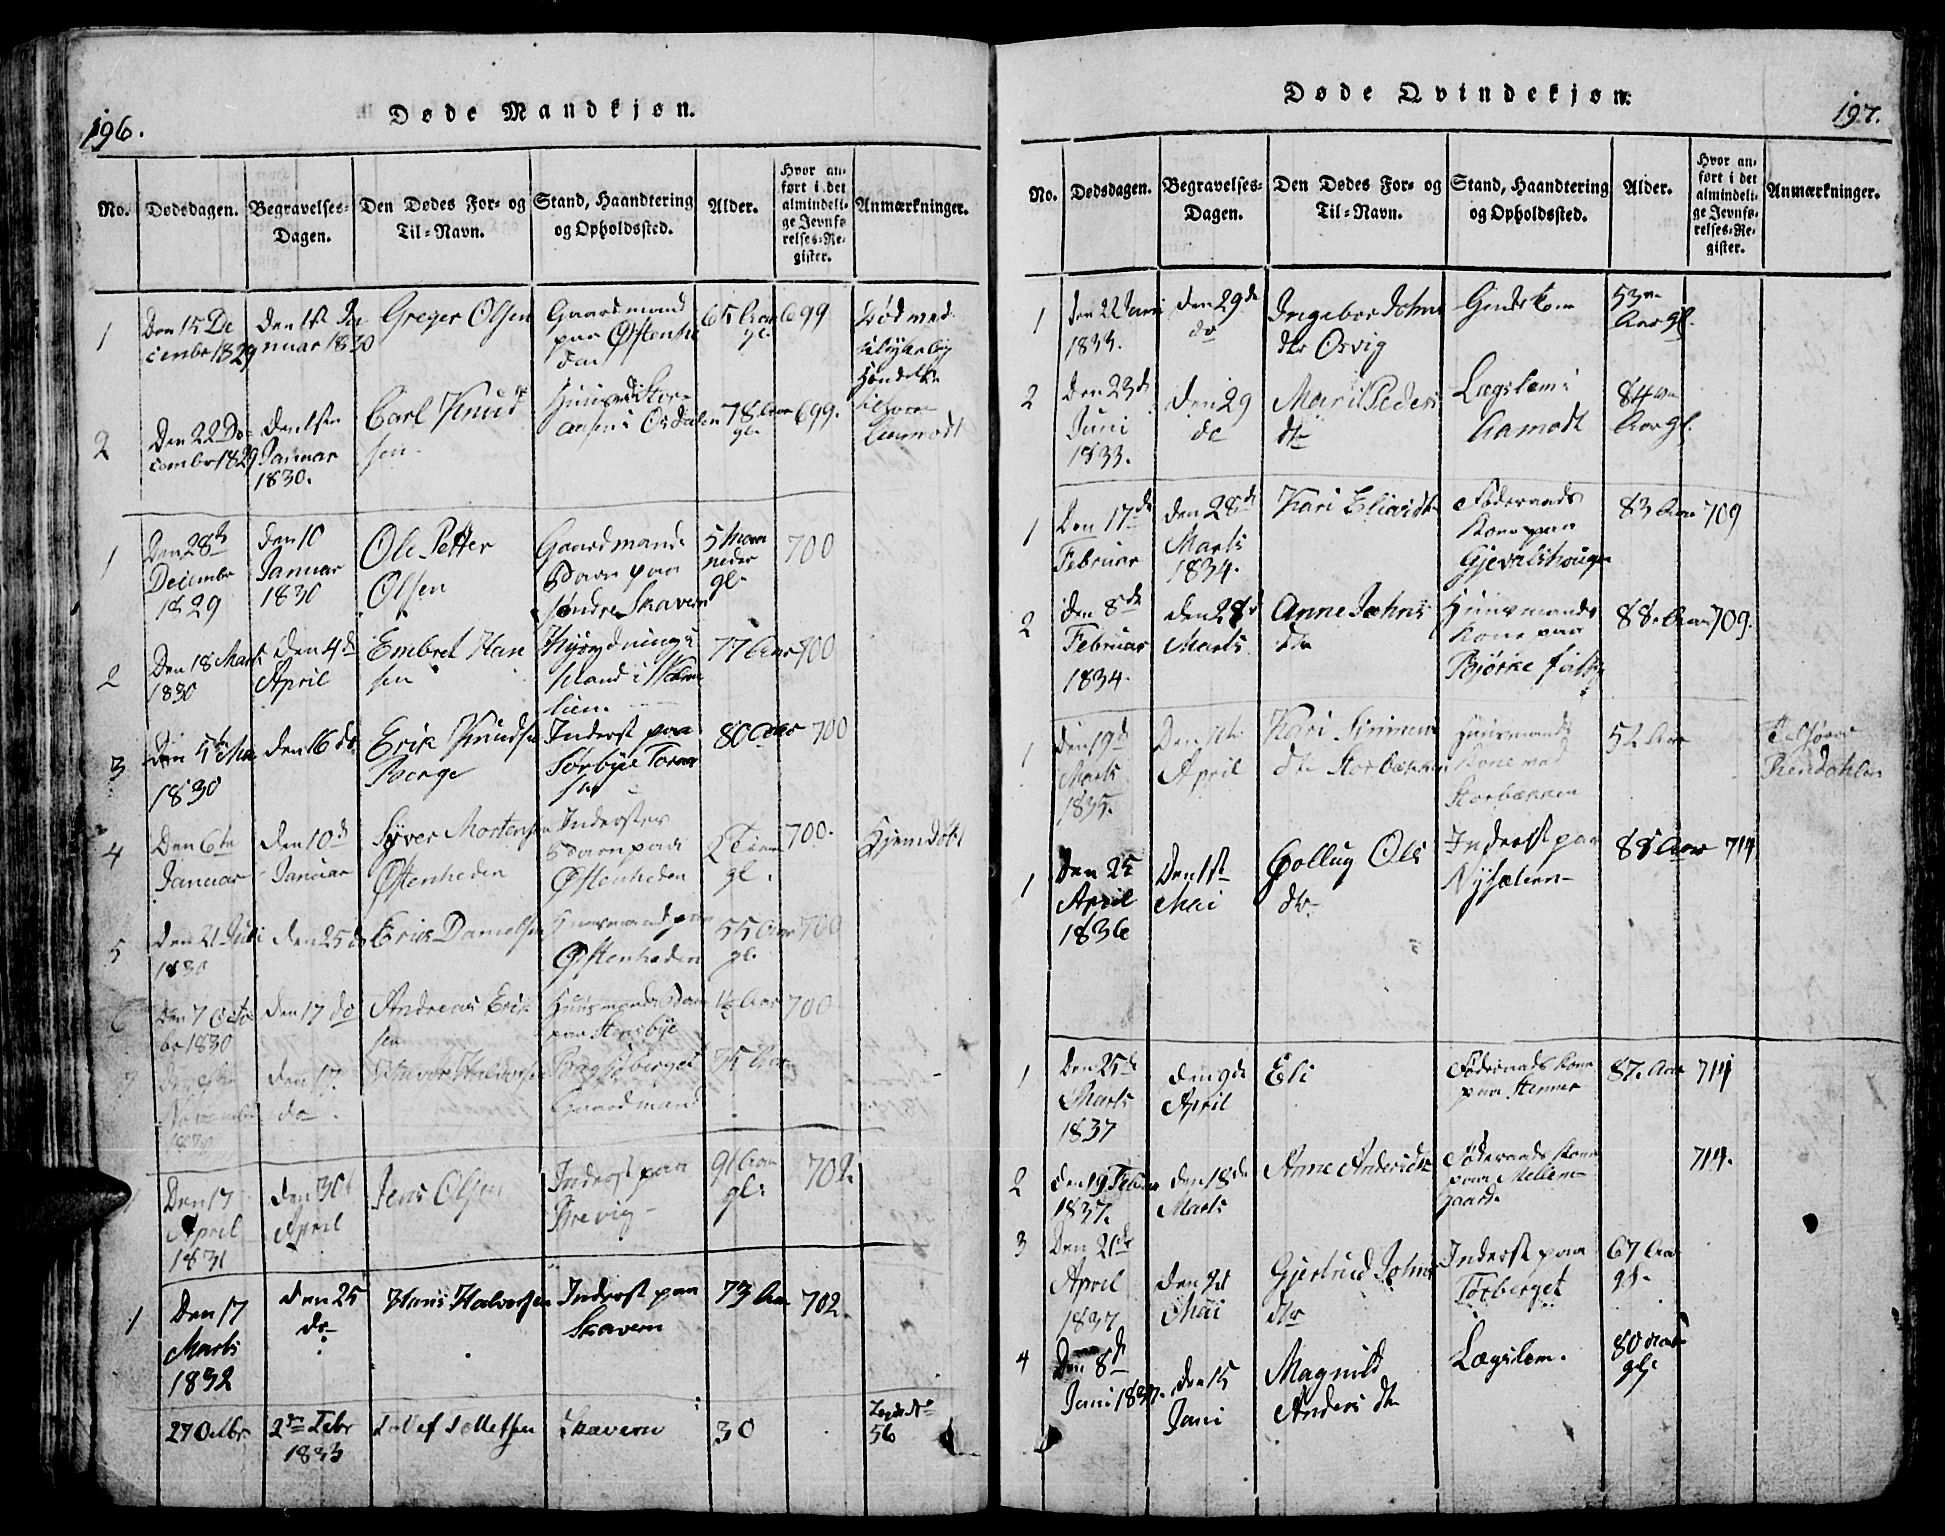 196.
Døde Mandkjøn.
No.
Dødsdagen.
Begravelses-
Dagen.
Den Dødes For- og
Til-Navn.
Stand, Haandtering
og Opholdssted.
Alder.
Hvor an-
ført i det
almindeli-
ge Jevnfø-
relses-Re-
gister.
Anmærkninger.
1
Den 15 De
cembr 1829
Den 1st Ja
nuar 1830
Greger Olsen
Gaardmand
paa Østenhe
den
65 Aar
gl.
699
Død ved
2
Den 22 De-
cembr 1829
Den 1ste
Januar
1830.
Carl Knud
sen
i Osdalen
78 Aar
gl.
699.
Aamodt
1
Den 28de
Decembr
1829
Den 10
Januar
1830
Ole Petter
Olsen
Gaardmands
Barn paa
søndre Skavern
5 Maa
neder
gl.
700
2
Den 18 Marts
1830
Den 4de
April
Embret Han
sen
Nyrydnings
mand i
lien.
77 Aar
700
3
Den 5te Ma
1830
Den 16 do
Erik Knudsen
Berge
Inderst paa
Sørbye
80 Aar
700
4
Den 6te
Januar
Den 10de
Januar
Syver Mortensen
Østenheden
Inderstes
Barn paa
Østenheden
gl.
700.
Hjemdøbt
5
Den 21 Juli
1830
Den 25 do
Erik Danielsen
Huusmand paa
Østenheden
55 Aar
gl.
700
6
Den 7 Octo
br 1830
Den 17 do
Andreas Erik
sen
Huusmands Barn
paa Stensbye
1½ Aar
700
7
Novembr
1830
Den 17
do.
Halvor Halvorsen
Gaardmand
75 Aar
1
Den 17
April
1831
Den 30t
April
Jens Olsen
Inderst paa
Brevig
91 Aar
gl.
702.
1
Den 17
Marts
1832
Den 25
do
Hans Halvorsen
Inderst paa
Skavern
73 Aar
702.
27 Octbr.
2den Febr
1833
Tollef Tollefsen
Skavern
30
56
197.
Døde Qvindekjøn.
No.
Dødsdagen.
Begravelses-
Dagen.
Den Dødes For- og
Til-Navn.
Stand, Haandtering
og Opholdssted.
Alder.
Hvor an-
ført i det
almindeli-
ge Jevnfø-
relses-Re-
gister.
Anmærkninger.
1
Den 22 Juni
1833.
Den 29de
do
Ingebor Johns
dtr Osvig
53
Aar gl.
2
Den 23de
Juni
1833.
Den 29
do
Marit Peders
dtr
Lægslem i
Aamodt
84
Aar gl.
1
Den 17de
Februar
Den 28de
Marts
1834.
Kari
Føderaads
Kone paa
Gjevalshaugen
83 Aar
709
2
Den 8de
Februar
1834.
Den 28d
Marts
Anne Johns
dtr
Huusmands
Kone paa
Bjørke
88. Aar
709.
1
Den 19de
Marts
1835.
April
Kari Simens
dtr Storbækken
Huusmands
Kone ved
Storbækken
52 Aar
Rendahlen
1
Den 25
April
1836
Den 1st
Mai
Gollug Ols
dtr
Inderst paa
Nysæteren
88 Aar
714
1
Den 25de
Marts
1837
Den 9de
April
Eli
Føderaads Kone
paa Stemer
87 Aar
714
2
Den 19 Februar
1837.
Den 18de
Marts
Anne Andersdtr
Føderaads Kone
paa Mellem-
gaard
714.
3
Den 21de
April
1837
Mai
Gjertrud Johns
dtr
Inderst paa
Torberget
67 Aar
gl.
4
Den 8de
Juni 1837.
Den 15
Juni
Magnild
Anders dtr
Lægslem.
80 Aar
gl.